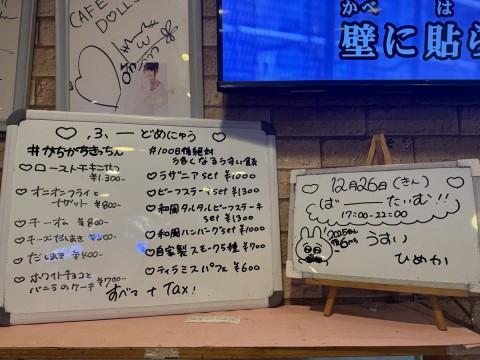 CAFE
DOLL
かべ は
壁に貼ら
♡ ,3、ー どめにゅう ♡
#がちがちきっちん
♡ローストチキンれっつ
¥1.300-
オニオンフライと
ナゲット ¥800-
チーオム ¥800-
チーズだしまき ¥500-
だしまき ¥400-
ホワイトチョコと
バニラのケーキ ¥700-
#100日後絶対
うまくなるうすい飯
♡ラザニア set ¥1000
♡ビーフステーキ set ¥1300
♡和風タルタルビーフステーキ
set ¥1300
♡和風ハンバーグ set ¥1000
♡自家製スモーク5種 ¥700
♡ティラミスパフェ ¥600
すべて + Tax!
♡ 12月26日(きん) ♡
(ばーーたいむ!!)
17:00-22:00
うすい
ひめか